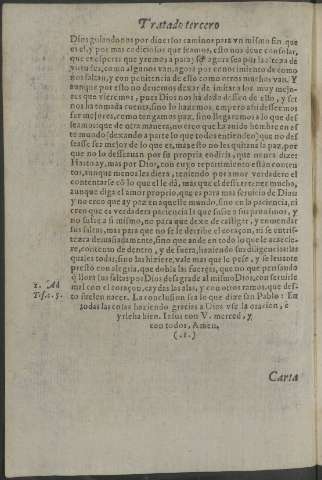 Tratado tercero
Dios guiandonos por diuersos caminos para vn mismo fin que
es el, y por mas codiciosos que seamos, esto nos deue consolar,
que en esperar que yremos a parar se agora sea por la alteza de
virtudes, como algunos van, agora por conocimiento de como
nos faltan, y con penitencia de ello como otros muchos van. Y
aunque por esto no deuemos dexar de imitar a los muy mejo-
res que vieremos, pues Dios nos ha dado desseo de esto, y ser
nos ha tomada cuenta, sino lo hazemos: empero assi dessemos
ser mejores, como tengamos paz, sino llegaremos a lo que des-
seamos: que de otra manera, no creo que ha auido hombre en el
mundo (dexando a parte lo que todos entienden) que no des-
seasse ser mejor de lo que es, mas esto no les quitaua la paz, por
que no lo desseauan por su propria cudicia, que nunca dize:
Harto ay, mas por Dios, con cuyo repartimiento estan conten-
tos, aunque menos les diera, teniendo por amor verdadero el
contentarse cō lo que el le dà, mas que el dessear tener mucho,
aunque diga el amor proprio, que es para mas seruicio de Dios
y no creo que ay paz en aquelle mundo, sino en la paciencia, ni
creo que es verdadera paciencia la que sufre a sus proximos, y
no sufre a si mismo, no para que dexe de castigar, y emendar
sus faltas, mas para que no se le derribe el coraçon, ni se entris-
tezca demasiadamente, sino que ande en todo lo que le acaecie-
re, contento de dentro, y de fuera, haziendo sus diligencias: las
quales todas, sino las hiziere, vale mas que le pese, y se leuante
presto con alegria, que dobla las fuerças, que no que pensando
q̃ llora sus faltas por Dios desagrade al mismo Dios, con seruirle
mal con el coraçon, caydas las alas, y con otros ramos, que des-
1. Ad to suelen nacer. La conclusion sea lo que dize san Pablo: En
Tes.c.5. todas las cosas haziendo gracias a Dios vse la oracion, è
yrleha bien. Iesus con V. merced, y
con todos, Amen.
(.?.)
Carta